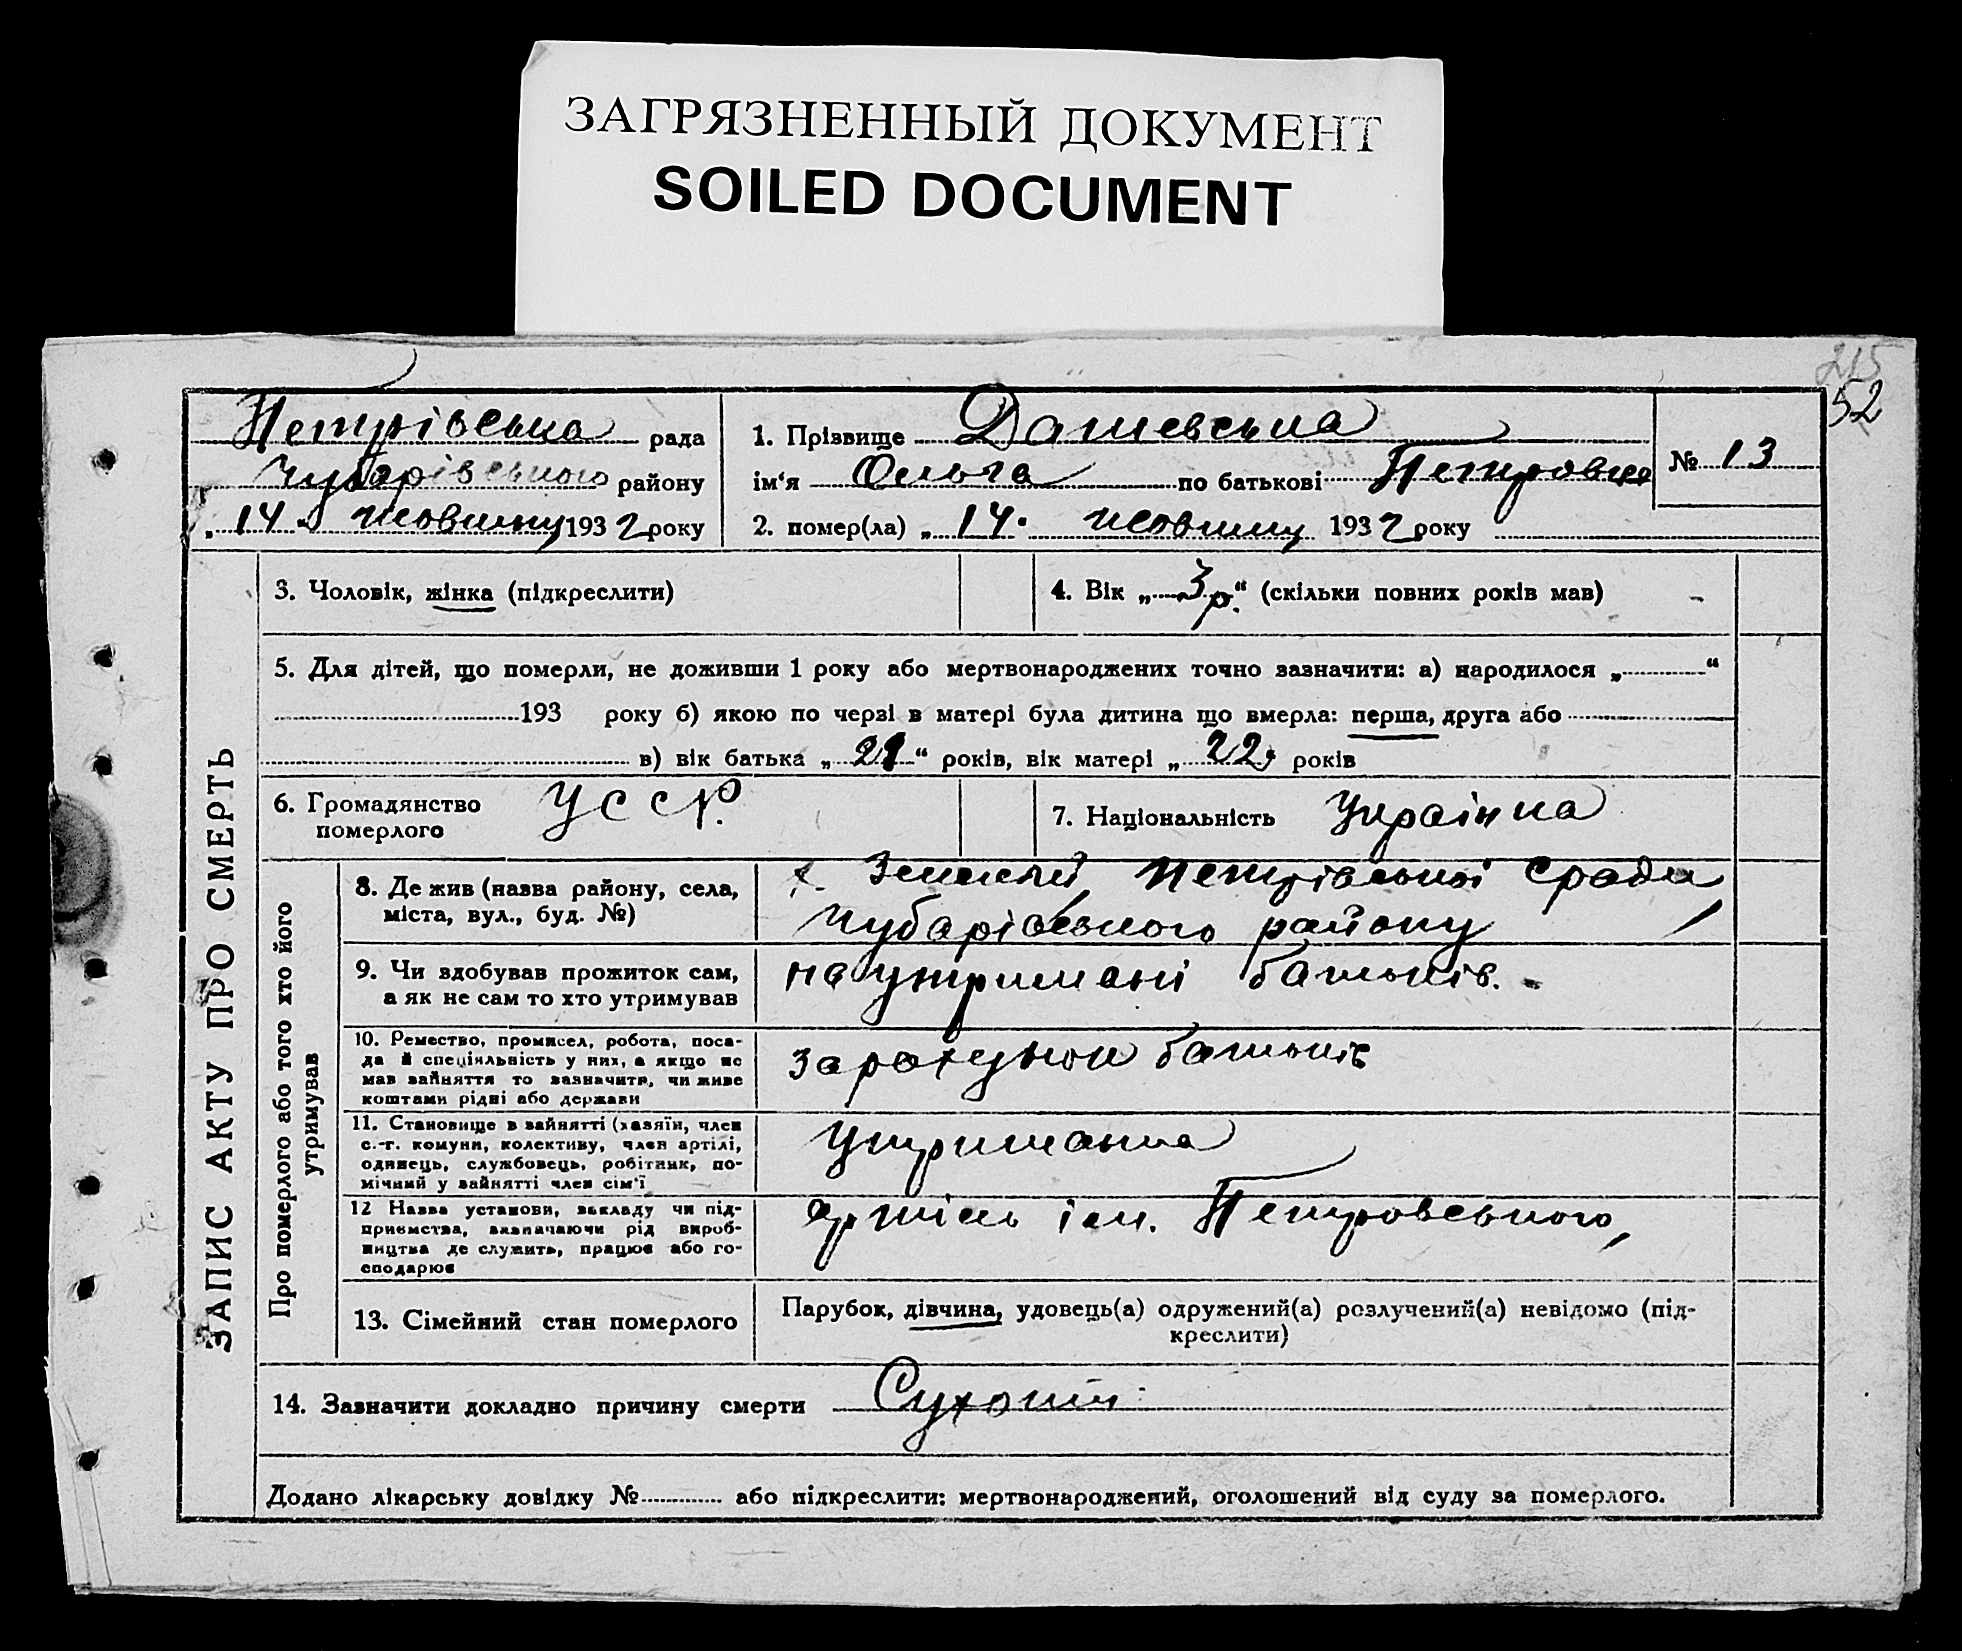 ЗАГРЯЗНЕННЫЙ ДОКУМЕНТ
SOILED DOCUMENT
215
52
Петрівська рада
Чубарівського району
„ 14 „ жовтня 1932 року
1. Прізвище Дашевська
ім‘я Ольга по батькові Петровна
2. помер(ла) „ 14 " жовтня 1932 року
№ 13
ЗАПИС АКТУ ПРО СМЕРТЬ
3. Чоловік, жінка (підкреслити)
4. Вік „ 3 р. “ (скільки повних років мав)
5. Для дітей, що померли, не доживши 1 року або мертвонароджених точно зазначити: а) народилося „ “
193 року б) якою по черзі в матері була дитина що вмерла: перша, друга або
в) вік батька „ “ років, вік матері „ 22 років
6. Громадянство
померлого
УССР.
7. Національність Українка
Про померлого або того хто його
утримував
8. Де жив (назва району, села,
міста, вул., буд. №)
х. Петрівської с/ради,
Чубарівського району
9. Чи здобував прожиток сам,
а як не сам то хто утримував
на утримані батьків.
10. Ремество, промисел, робота, поса-
да й спеціяльність у них, а якщо не
мав зайняття то зазначити, чи живе
коштами рідні або держави
за рахунок батьків
11. Становище в зайнятті (хазяїн, член
с.-г. комуни, колективу, член артілі,
одинець, службовець, робітник, по-
мічний у зайнятті член сім'ї
Утриманка
12 Назва установи, закладу чи під-
приємства, зазначаючи рід вироб-
ництва де служить, працює або го-
сподарює
Артіль ім. Петровського,
13. Сімейний стан померлого
Парубок, дівчина, удовець(а) одружений(а) розлучений(а) невідомо (під-
креслити)
14. Зазначити докладно причину смерти Сухоти
Додано лікарську довідку № або підкреслити: мертвонароджений, оголошений від суду за померлого.